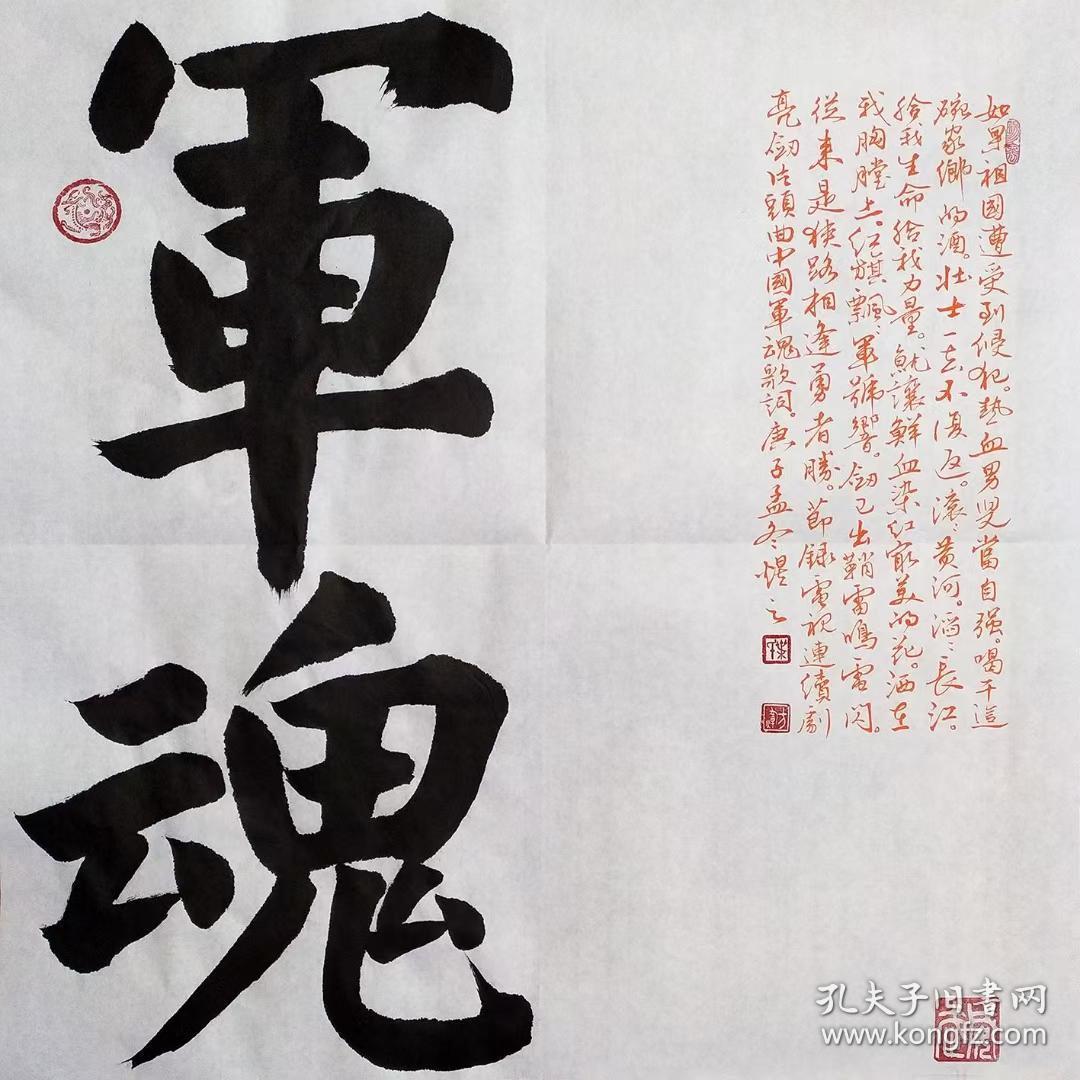 軍魂
如果祖國遭受到侵犯。熱血男兒當自强。喝干這
碗家鄉的酒。壯士一去不復返。滾〻黄河。滔〻長江。
给我生命给我力量。就讓鮮血染红最美的花。洒在
我胸膛上。红旗飄〻軍號響。劍已出鞘雷鳴電闪。
從来是狭路相逢勇者勝。節録電視連續劇
亮劍片頭曲中國軍魂歌詞。庚子孟冬
孔夫子旧书网
www.kongfz.com